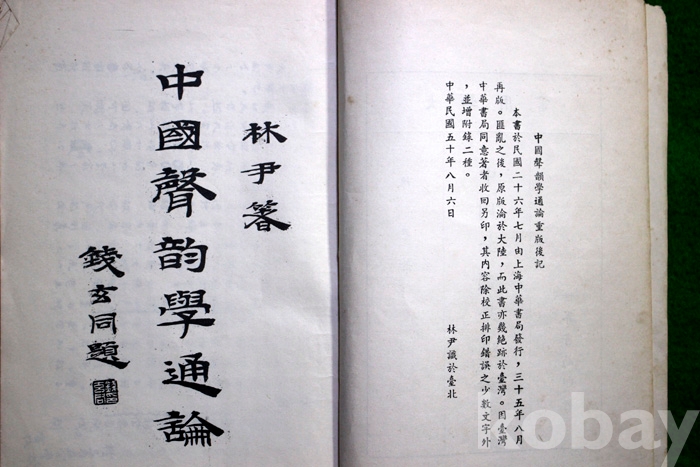 中國聲韵學通論
林尹箸
錢玄同題
中國聲韻學通論重版後記
本書於民國二十六年七月由上海中華書局發行，三十五年八月
再版。匪亂之後，原版淪於大陸，而此書亦幾絕跡於臺灣。因臺灣
中華書局同意著者收回另印，其內容除校正排印錯誤之少數文字外
，並增附錄二種。
中華民國五十年八月六日
林尹識於臺北
obay